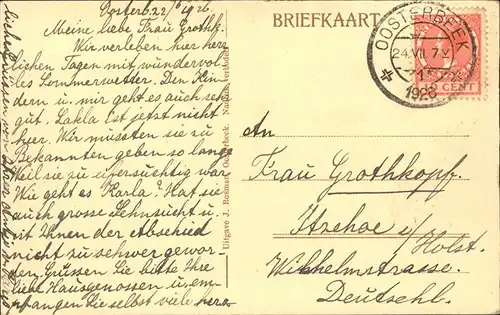 Oosterb. 22/6 1926.
Meine liebe Frau Grothk.
Wir verleben hier herr
lichen Tagen mit wundervol
les Sommerwetter. Den Kin
dern u. mir geht es auch sehr
gut. Lakla Est jetzt nicht
hier. Wir mussten sie zu
Bekannten geben so lange
Weil sie zu
war.
Wie geht es Karla? Hat sie
auch grosse Sehnsucht u.
ist Ihnen der Abschied
nicht zu schwer gewor
den. Grüssen Sie bitte Ihre
liebe Hausgenossen u. em
pfangen Sie selbst viele herz
liche Grüssen von
Uitgave J. Bosman, Oosterbeek. Nadruk verboden.
BRIEFKAART
OOSTERBEEK
24.VII. 7 V
1926
CENT
An
Frau Grothkopf.
Itzehoe i/
Holst.
Wilhelmstrasse.
Deutschl.